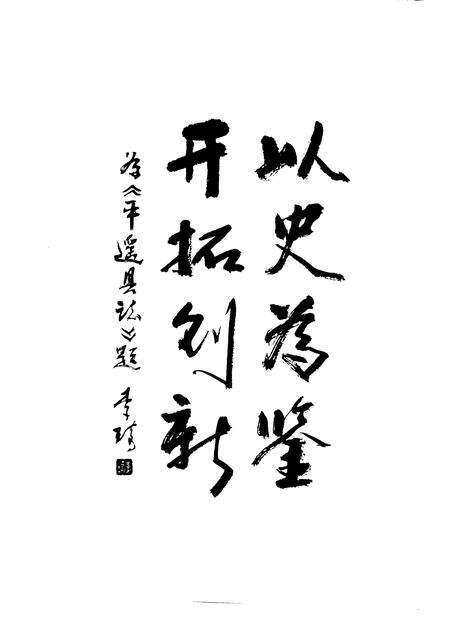 以史为鉴
开拓创新
为《平遥县志》题 李琦